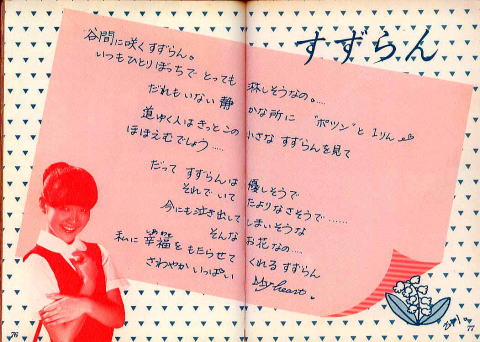 すずらん
谷間に咲くすずらん。
いつもひとりぼっちで とっても 淋しそうなの。‥‥
だれもいない 静かな所に "ポツン"と1りん
道ゆく人はきっとこの 小さな すずらんを見て
ほほえむでしょう ‥‥‥
だって すずらんは 優しそうで
それでいて たよりなさそうで ‥‥‥‥
今にも泣き出して しまいそうな
そんな お花なの‥‥
私に 幸福をもたらせて くれる すずらん
さわやかいっぱい My heart。
76
77